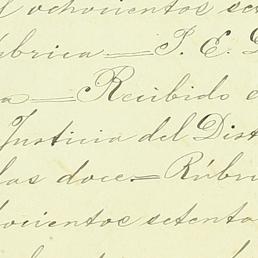 l ochocientos set
úbrica = P. E. D
a = Recibido e
Justicia del Dist
las doce = Rúbri
hocientos setenta